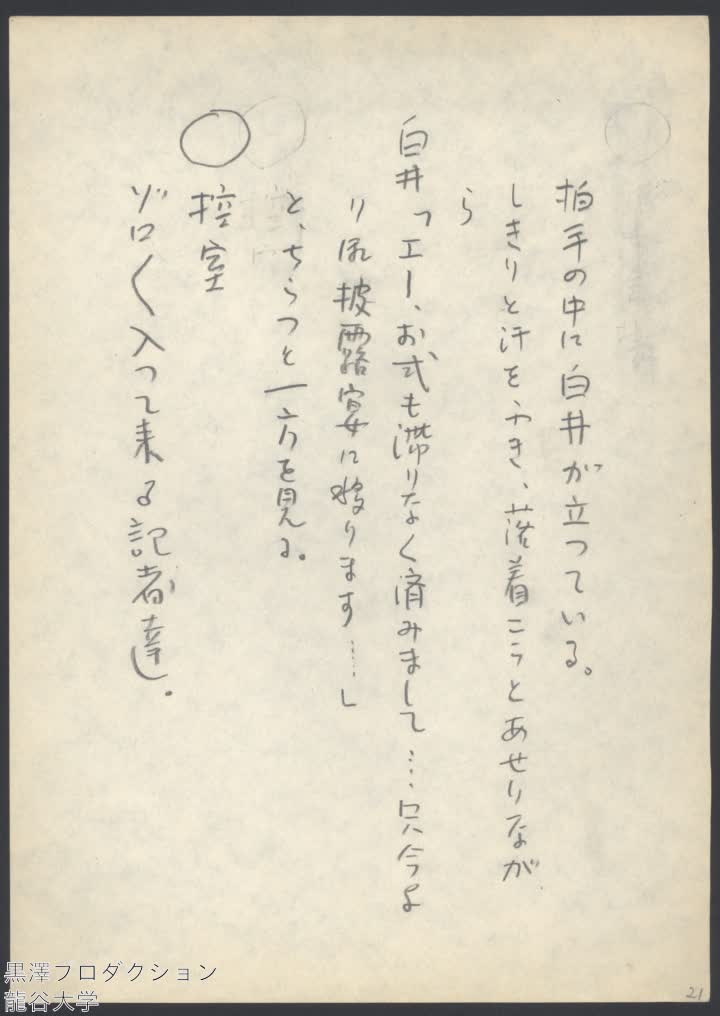 拍手の中に白井が立つている。
しきりと汗をふき、落着こうとあせりなが
ら
白井「エー、お式も滞りなく済みまして…只今よ
り披露宴に移ります……」
と、ちらつと一方を見る。
○控室
ゾロ〱入つて来る記者達。
21
黒澤プロダクション
龍谷大学